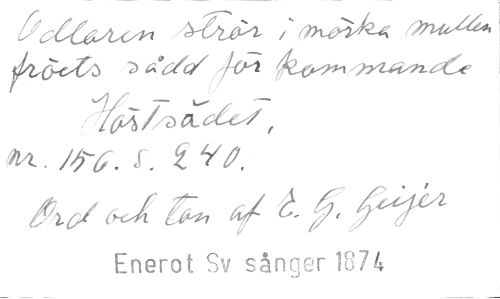 Odlaren strör i mörka mullen
fröets sådd för kommande
Höstsädet,
nr. 156. s. 240.
Ord och ton af E. G. Geijer
Enerot Sv sånger 1874